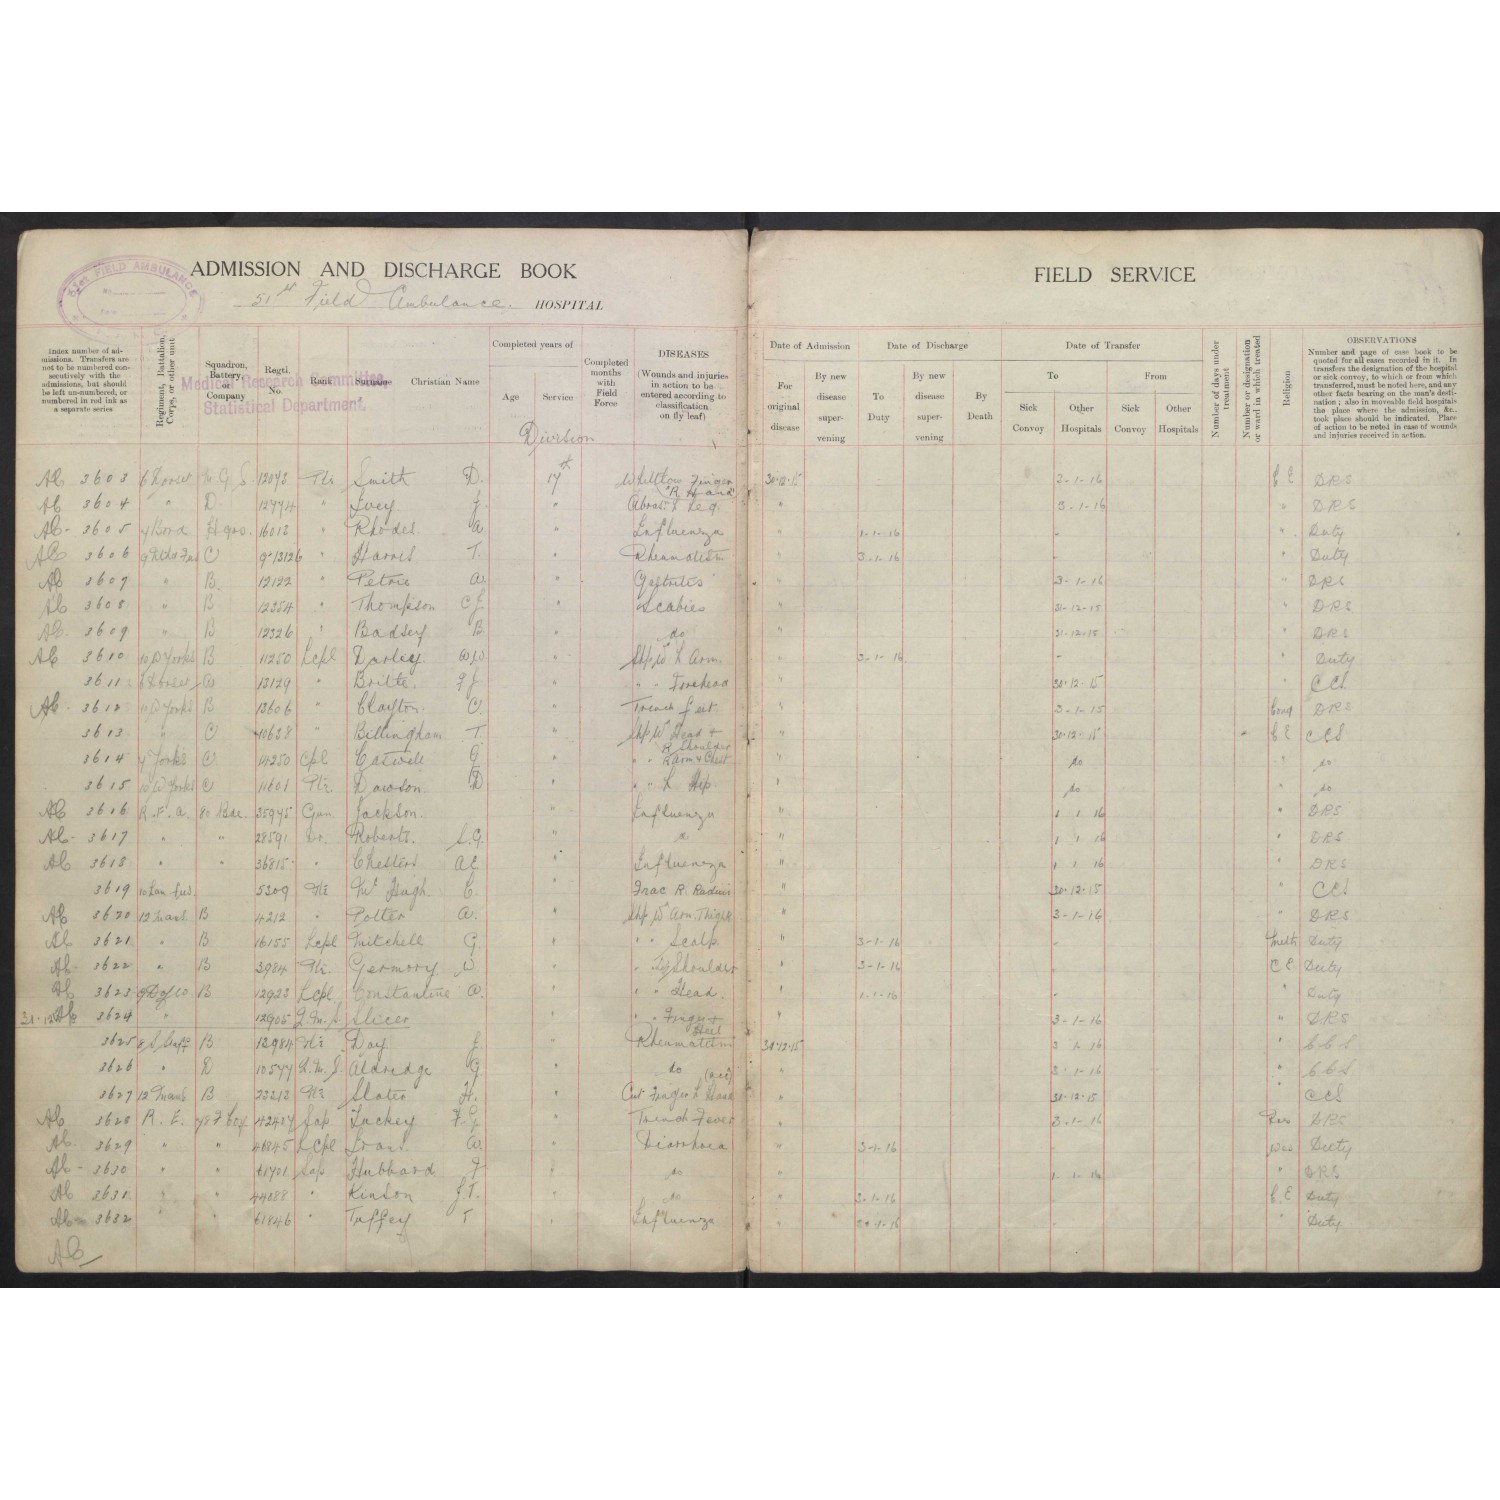 51st FIELD AMBULANCE
ADMISSION AND DISCHARGE BOOK
51st Field Ambulance. HOSPITAL
FIELD SERVICE
Index number of admissions. Transfers are not to be numbered consecutively with the admissions, but should be left un-numbered, or numbered in red ink as a separate series
Regiment, Battalion, Corps, or other unit
Squadron, Battery, or Company
Regtl. No.
Rank
Surname
Christian Name
Medical Research Committee,
Statistical Department.
Completed years of
Age
Service
Completed months with Field Force
DISEASES
(Wounds and injuries in action to be entered according to classification on fly leaf)
Division
Date of Admission
For original disease
By new disease supervening
Date of Discharge
To Duty
By new disease supervening
By Death
Date of Transfer
To
From
Sick Convoy
Other Hospitals
Sick Convoy
Other Hospitals
Number of days under treatment
Number or designation or ward in which treated
Religion
OBSERVATIONS
Number and page of case book to be quoted for all cases recorded in it. In transfers the designation of the hospital or sick convoy, to which or from which transferred, must be noted here, and any other facts bearing on the man's destination; also in moveable field hospitals the place where the admission, &c., took place should be indicated. Place of action to be noted in case of wounds and injuries received in action.
3603 6 Dorset M.G.S. 12043 Pte Smith D. 17th Whitlow Finger R Hand 30.12.15 3-1-16 C E DRS
3604 " D 12774 " Ivey J. " Abras. L Leg. " 3-1-16 " DRS
3605 7 Bord Hqrs. 16013 " Rhodes A. " Influenza " 1-1-16 " Duty
3606 9 Nthd Fus C 9-13126 " Harris T. " Rheumatism " 3-1-16 " Duty
3607 " B. 12122 " Petrie A. " Gastritis " 3-1-16 " DRS
3608 " B 12254 " Thompson C J. " Scabies " 31-12-15 " DRS
3609 " B 12326 " Badsey B " do " 31-12-15 " DRS
3610 10 W Yorks B 11250 Lcpl Darley. W W " Shp. Wd L Arm. " 3-1-16 " Duty
3611 6 Dorset 13129 " Britte. J. " " " Forehead " 30-12-15 " CCS
3612 10 W Yorks B 13606 " Clayton C. " Trench feet " 3-1-15 Cong DRS
3613 " C 10628 " Billingham T. " Shp Wd Head + R Shoulder " 30-12-15 C E CCS
3614 7 Yorks C 14250 Cpl G " " " R Arm & Chest " do " do
3615 10 W Yorks C 11601 Pte Dawson D " " " L Hip. " do " do
3616 R.F.A. 80 Bde. 35975 Gun Jackson. " Influenza " 1 1 16 " DRS
3617 " " 28591 Dr. Roberts. S.G. " " 1 1 16 " DRS
3618 " " 36815 " Chesters A E " Influenza " 1 1 16 " DRS
3619 10 Lan Fus. 5209 Pte C. " Frac R. Radius " 30-12-15 " CCS
3620 12 Manc B 4212 " Potter A. " Shp Wd Arm. Thigh " 3-1-16 " DRS
3621 " B 16155 Lcpl Mitchell G. " " " Scalp " 3-1-16 Meth Duty
3622 " B 3984 Pte. Germory W " " Shoulder " 3-1-16 C E Duty
3623 B 12923 Lcpl Constantine A. " " " Head. " 1-1-16 " Duty
3624 " 12905 Q.M.S Slicer " " " Finger + " 3-1-16 " DRS
3625 8 S Staffs B 12984 Pte Day J. " Rheumatism 31-12-15 2 1-16 " CCS
3626 " D 10577 Aldridge G. " do " 2-1-16 " CCS
3627 12 Manc B 22212 Pte Slater H. " Cut Finger L Hand (acc) " 31-12-15 " CCS
3628 R.E. 78 F Coy. 42407 Sap. Tuckey F.G " Trench Fever " 3.1-16 Pres DRS
3629 " " 46845 Lcpl Evans. W. " Diarrhoea " 3-1-16 Wes Duty
3630 " " 61701 Sap Hubbard F " do " 1-1-16 " DRS
3631 " " 44088 " Kinson J.T. " do " 3-1-16 C.E Duty
3632 " " 61846 " Taffey T " Influenza " -1-16 " Duty